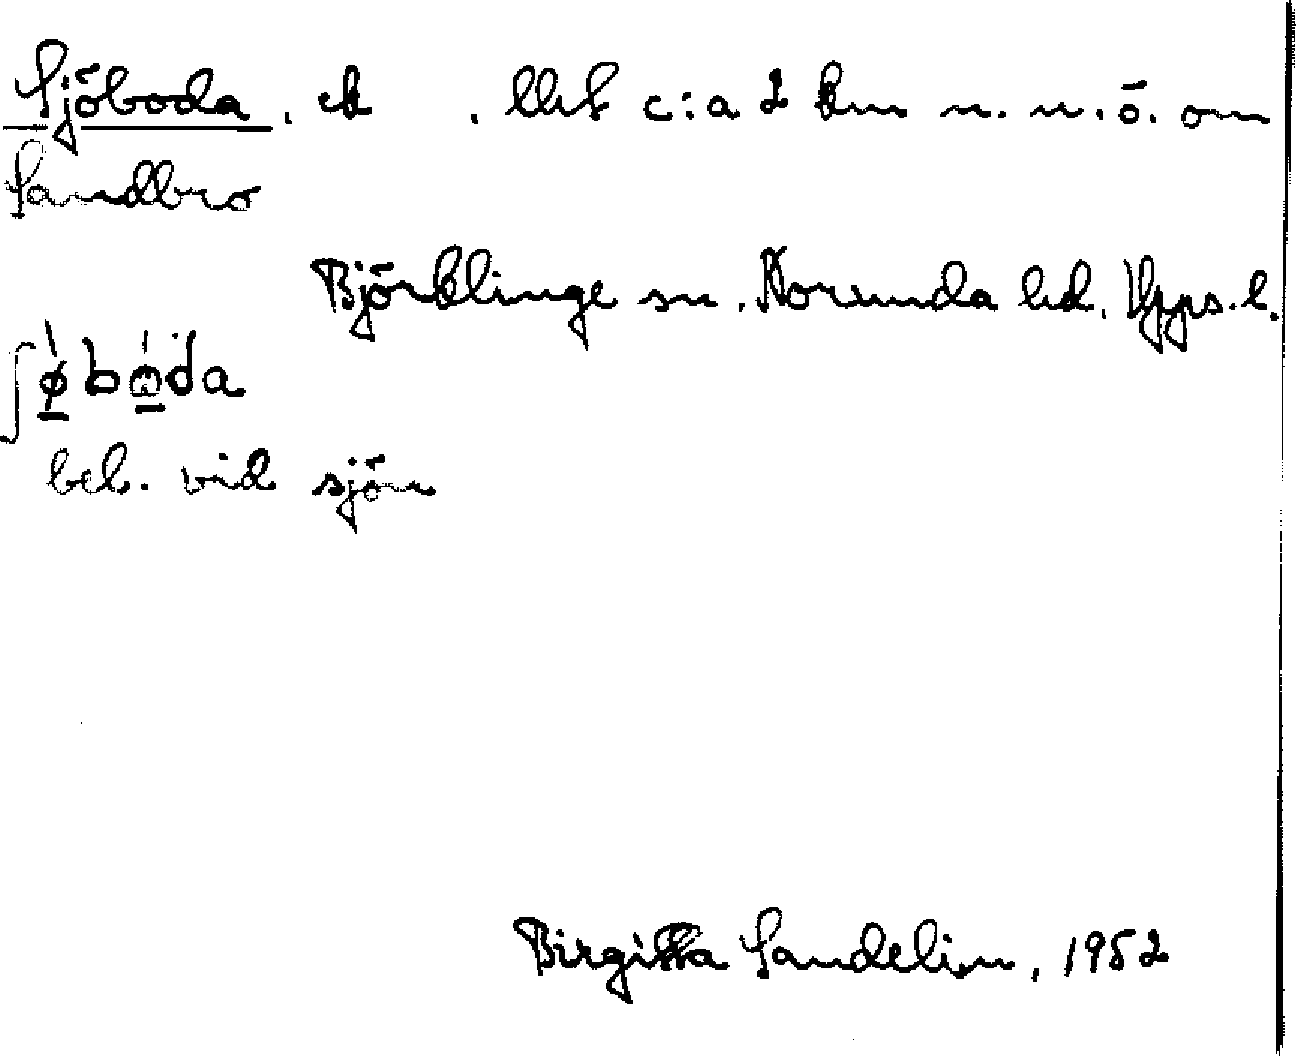 Sjöboda, ek . Ubl c:a 2 km n. n.ö. om
Sandbro
Björklinge sn. Norunda hd. Upps. l.
beb. vid sjön
Birgitta Sandelin, 1952